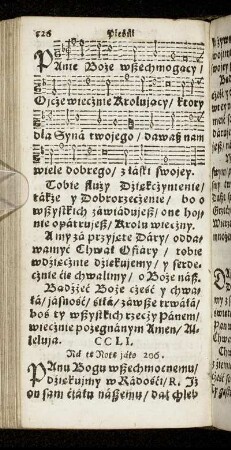 526 Pieśni
PAnie Boże wßechmogący/
Ojcże wiecżnie Krolujący/ ktory
dla Syná twojego/ dawaß nam
wiele dobrego/ z łáski swojey.
Tobie służy Dziękcżynienie/
tákże y Dobrorzecżenie/ bo o
wßyſtkich záwiádujeß/ one hoj-
nie opátrujeß/ Krolu wiecżny.
A my zá przyjęte Dáry/ oddá-
wamyć Chwał Ofiáry/ tobie
wdziecżnie dziękujemy/ y serde-
cżnie ćię chwalimy/ o Boże náß.
Bądźżeć Boże cżeść y chwa-
łá/ jásność/ śiłá/ záwße trwáłá/
boś ty wßyſtkich rzecży Pánem/
wiecżnie pożegnánym Amen/ Al-
leluja.
CCLI.
Ná tę Notę jáko 206.
PAnu Bogu wßechmocnemu/
Dziękujmy w Rádośći/ R. Iż
on sam ćiáłu náßemu/ dáł chleb